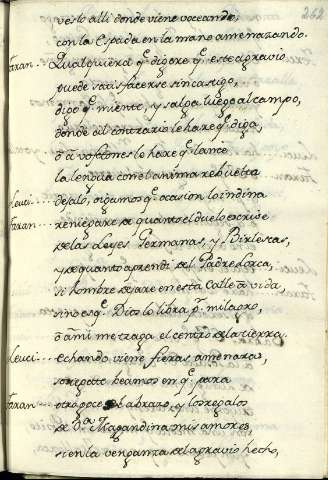 262
veslo alli donde viene voceando,
con la espada en la mano amenazando.
faran. Qualquiera q̃ digere q̃ este agravio
puede satisfacerse sin castigo,
digo q̃ miente, y salga luego al campo,
donde al contrario le hare q̃ diga,
ō a voſcones le hare q̃ lance
la lengua con el anima rebuelta
Leuci. dejalo, oigamos q̃ ocasion lo indina
faran. renegare de quanto el duelo escribe
de las Leyes Germanas, y Birlescas,
y de quanto aprendi del Padre
si hombre dejare en esta calle a vida,
sino es q̃ Dios lo libra p.r milagro,
ō a mi me traga el centro de la tierra.
Leuci. echando viene fieras amenazas,
soseguese veamos en q̃ para
faran. otro poce abrazo, y los regalos
de D.ª Magandina mis amores
si en la venganza del agravio hecho,